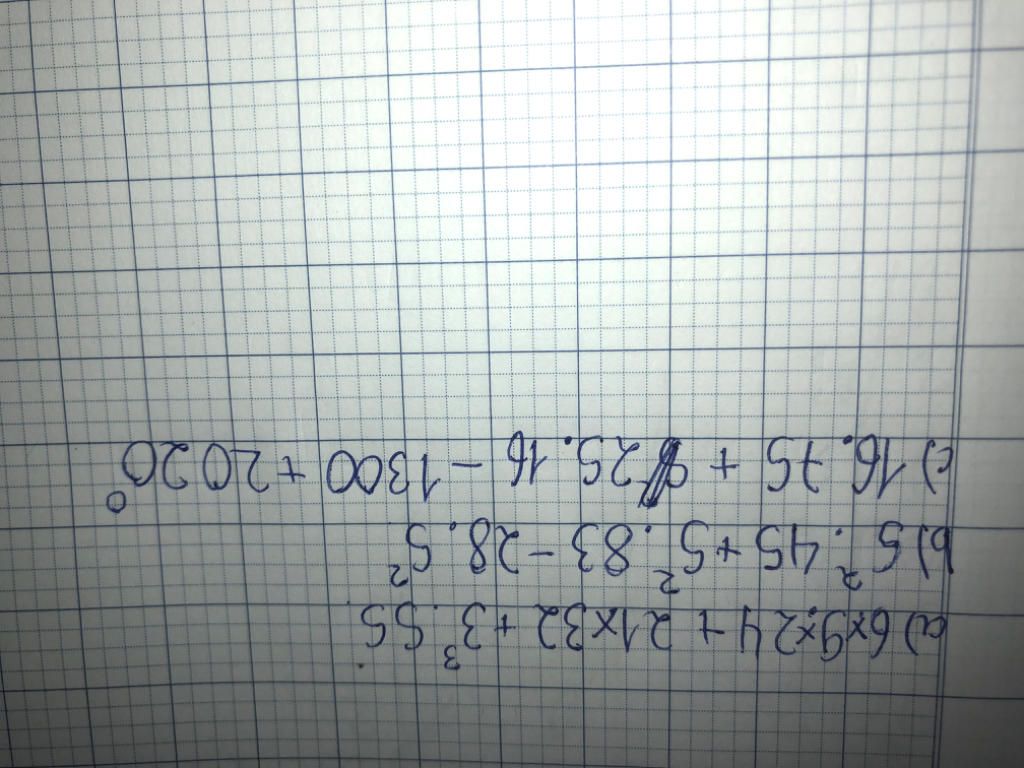 a) 6x9x24 + 21x32 + 3³.55
b) 5².45 + 5².83 - 28.5²
c) 16.75 + 25.16 - 1300 + 2020⁰